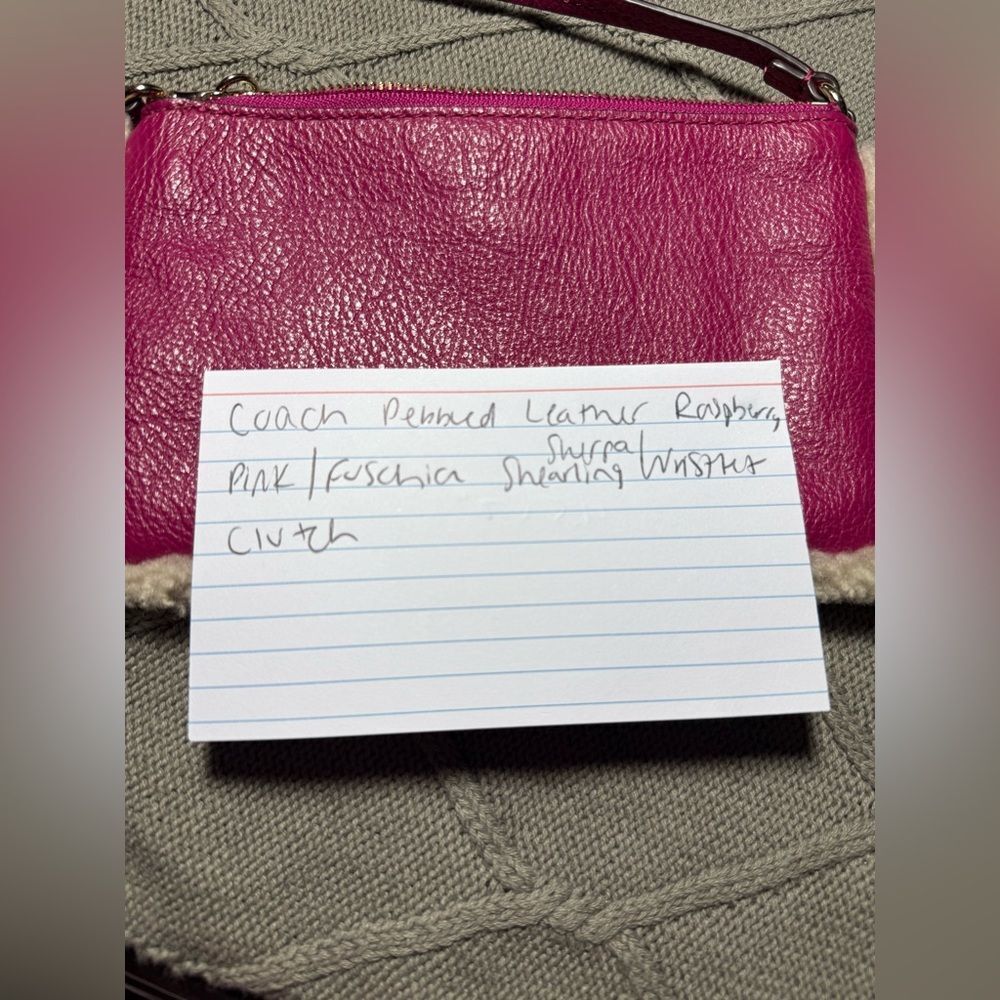 Coach Pebbled Leather Raspberry
PINK/Fuschia Shearling Sherpa/Wristlet
Clutch